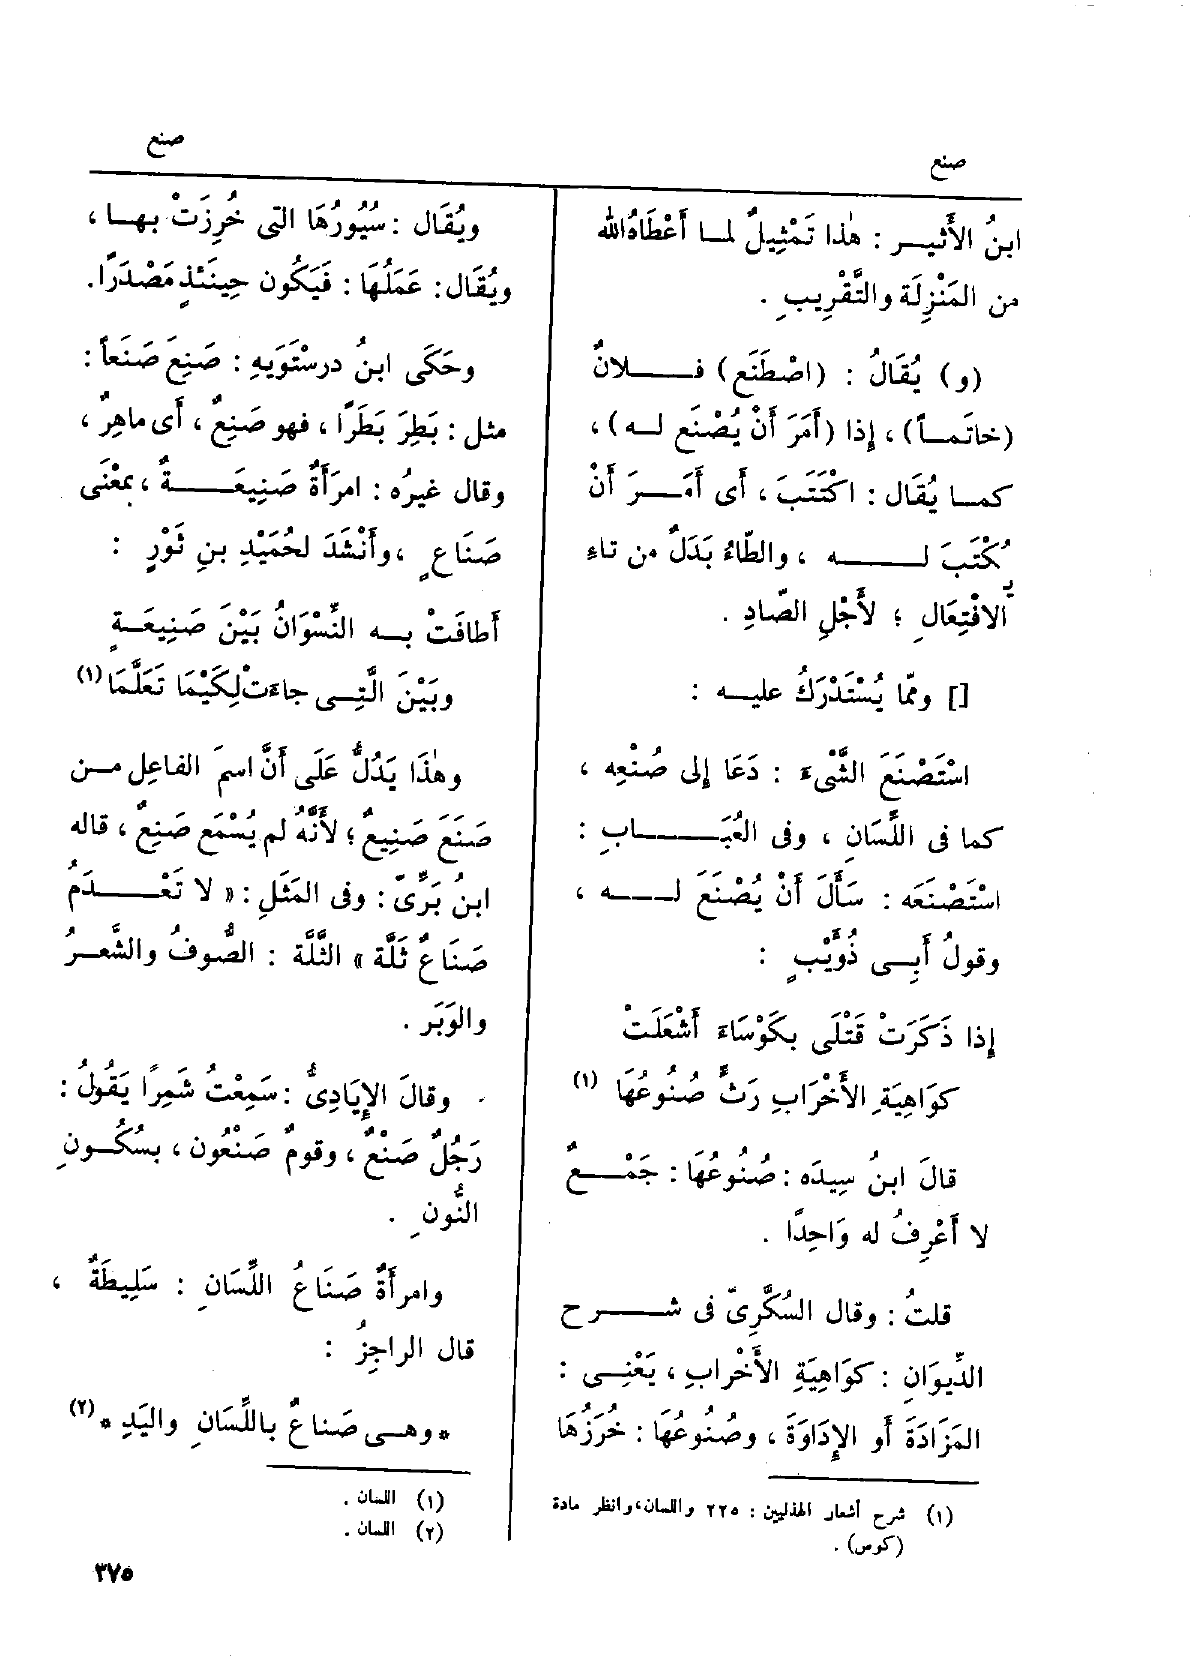 صنع
صنع
ابنُ الأَثيـر : هٰذا تَمْثِيلٌ لمـا أَعْطَاهُ الله
من المَنْزِلَة والتَّقْرِيبِ .
(و) يُقَالُ : (اصْطَنَع) فـلانٌ
(خاتَمـاً) ، إِذا (أَمَرَ أَنْ يُصْنَع لـه) ،
كمـا يُقَال : اكْتَتَبَ ، أَى أَمَـرَ أَنْ
يُكْتَبَ لـه ، والطّاءُ بَدَلٌ من تاءِ
الافْتِعَالِ ؛ لأَجْلِ الصّادِ .
[] وممّا يُسْتَدْرَكُ عليـه :
اسْتَصْنَعَ الشَّىءَ : دَعَا إِلى صُنْعِه ،
كما فى اللِّسَانِ ، وفى العُبَـابِ :
اسْتَصْنَعَه : سَأَلَ أَنْ يُصْنَعَ لـه ،
وقولُ أَبِـى ذُؤَيْبٍ :
إِذا ذَكَرَتْ قَتْلَى بكَوْسَاءَ أَشْعَلَتْ
كوَاهِيَةِ الأَخْرَابِ رَثٌّ صُنُوعُهَا (١)
قالَ ابنُ سِيدَه : صُنُوعُهَا : جَمْـعٌ
لا أَعْرِفُ له وَاحِدًا .
قلتُ : وقال السُكَّرِىّ فى شـرح
الدِّيوَانِ : كوَاهِيَةِ الأَخْرابِ ، يَعْنِـى :
المَزَادَةَ أَو الإِدَاوَةَ ، وصُنُوعُهَا : خُرَزُهَا
(١) شرح أشعار الهذليين : ٢٢٥ واللسان ، وانظر مادة
(كوس) .
ويُقَال : سُيُورُهَا التى خُرِزَتْ بهـا ،
ويُقَال : عَمَلُهَا : فَيَكُون حِينَئذٍ مَصْدَرًا .
وحَكَى ابنُ درسْتَوَيهِ : صَنِعَ صَنَعاً :
مثل : بَطِرَ بَطَرًا ، فهو صَنِعٌ ، أَى ماهِرٌ ،
وقال غيرُه : امرَأَةٌ صَنِيعَـةٌ ، بمعْنَى
صَنَاعٍ ، وأَنْشَدَ لحُمَيْدِ بنِ ثَوْرٍ :
أَطافَتْ بـه النِّسْوَانُ بَيْنَ صَنِيعَـةٍ
وبَيْنَ الَّتِـى جاءَتْ لِكَيْمَا تَعَلَّمَا (١)
وهٰذَا يَدُلُّ عَلَى أَنَّ اسمَ الفاعِل مـن
صَنَعَ صَنِيعٌ ؛ لأَنَّهُ لم يُسْمَع صَنِعٌ ، قاله
ابنُ بَرِّىّ : وفى المَثَلِ : « لا تَعْـدَمُ
صَنَاعٌ ثَلَّة » الثَّلَّة : الصُّوفُ والشَّعـرُ
والوَبَر .
وقالَ الإِيَادِىُّ : سَمِعْتُ شَمِرًا يَقُولُ :
رَجُلٌ صَنْعٌ ، وقومٌ صَنْعُون ، بسُكُـونِ
النُّونِ .
وامرأَةٌ صَنَاعُ اللِّسَانِ : سَلِيطَةٌ ،
قال الراجِزُ :
* وهـى صَناعٌ باللِّسَانِ واليَدِ * (٢)
(١) اللسان .
(٢) اللسان .
٣٧٥